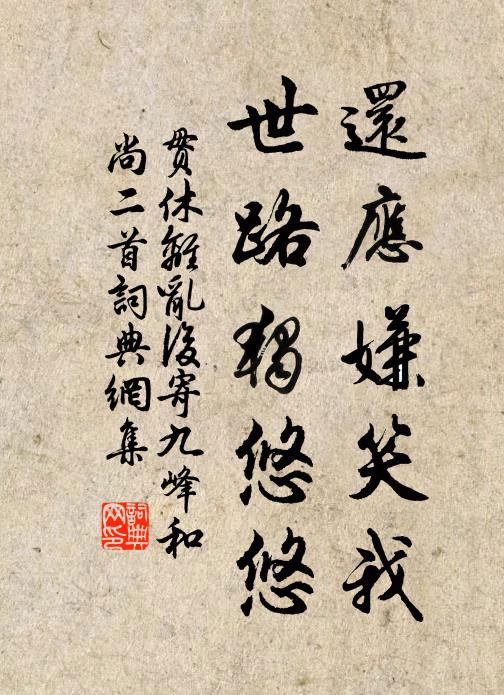 還應嫌笑我
世路獨悠悠
貫休離亂後寄九峰和
尚二首詞典網集
詞典网印